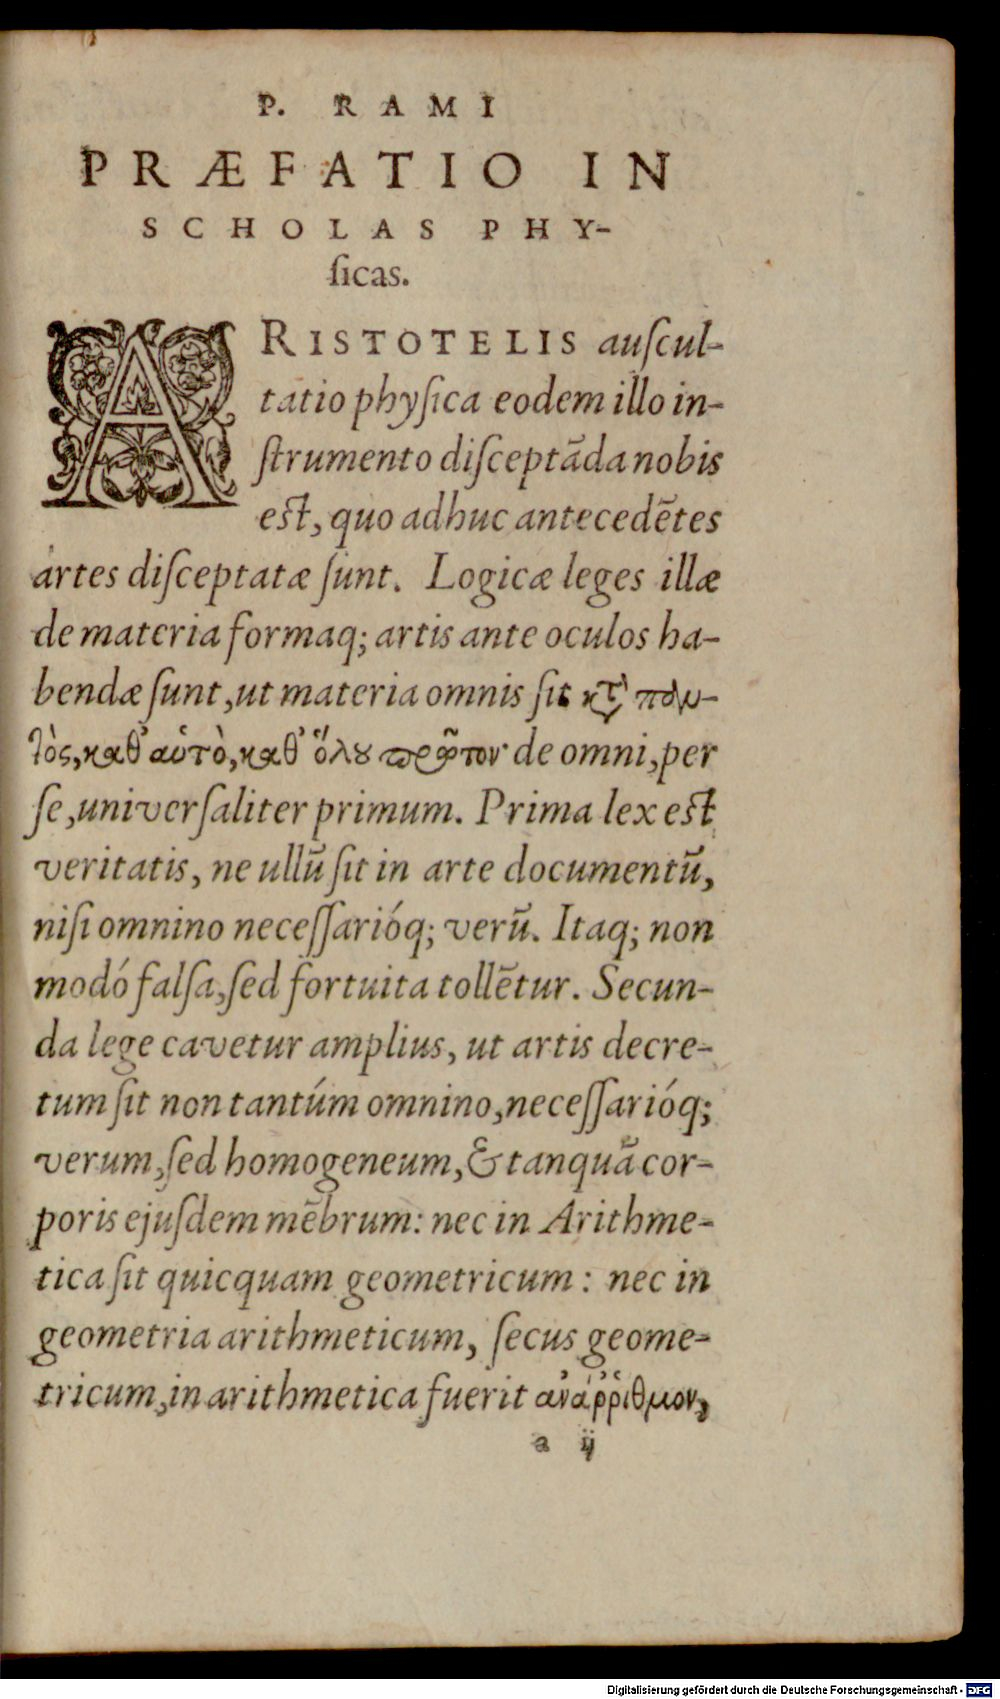 P. RAMI
PRÆFATIO IN
SCHOLAS PHY-
ſicas.
ARISTOTELIS auſcul-
tatio phyſica eodem illo in-
ſtrumento diſceptãda nobis
eſt, quo adhuc antecedẽtes
artes diſceptatæ ſunt. Logicæ leges illæ
de materia formaq; artis ante oculos ha-
bendæ ſunt, ut materia omnis ſit κτ̀ παν-
τὸς, καθ' αὑτὸ, καθ' ὅλου πρῶτον de omni, per
ſe, univerſaliter primum. Prima lex eſt
veritatis, ne ullũ ſit in arte documentũ,
niſi omnino neceſſarióq; verũ. Itaq; non
modó falſa, ſed fortuita tollẽtur. Secun-
da lege cavetur amplius, ut artis decre-
tum ſit non tantúm omnino, neceſſarióq;
verum, ſed homogeneum, & tanquã cor-
poris ejuſdem mẽbrum: nec in Arithme-
tica ſit quicquam geometricum: nec in
geometria arithmeticum, ſecus geome-
tricum, in arithmetica fuerit ἀνάῤῥιθμον,
a ij
Digitalisierung gefördert durch die Deutsche Forschungsgemeinschaft - DFG